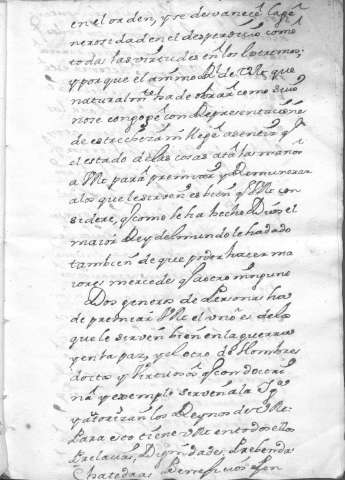 en el orden, y se desvanece la ge
nerosidad en el desperdicio como
todas las virtudes en los extremos;
y porque el animo de VM que
naturalmte ha de obrar como suio
no se congoje con Representaciones
de estrecheza
el estado de las cosas ata las manos
a VM para premiar y Remunerar
a los que le sirven es bien q VM con
sidere, q como le ha hecho Dios el
maior Rey del mundo le ha dado
tambien de que poder hacer ma
iores mercedes q a otro ninguno
Dos generos de Personas ha
de premiar VM el uno es de los
que le serven bien en la guerra
y en la paz, y el otro de Hombres
doctos y virtuosos q con doctri
na y exemplo serven a la Iga
y autorizan los Reynos de VM:
Para esto tiene VM en todos ellos
Prelacias, Dignidades, Prebendas
Chatedras Beneficios